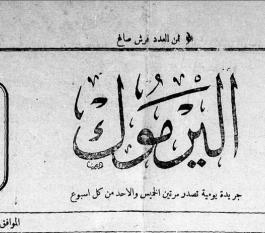 ثمن العدد قرش صالح
اليرموك
جريدة يومية تصدر مرتين الخميس والاحد من كل اسبوع
الموافق